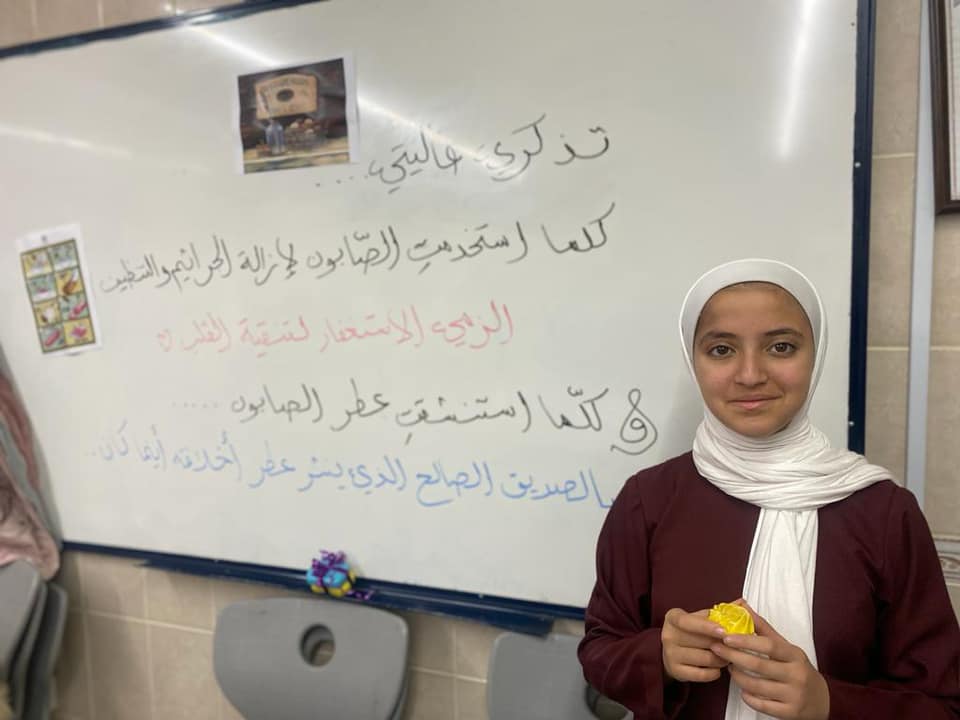 تذكري غاليتي....
كلما استخدمتِ الصّابون لإزالة الجراثيم والتنظيف
الزمي الاستغفار لتنقية القلب ♡
و كلّما استنشقتِ عطر الصابون .....
بالصديق الصالح الذي ينثر عطر أخلاقه أينما كان..